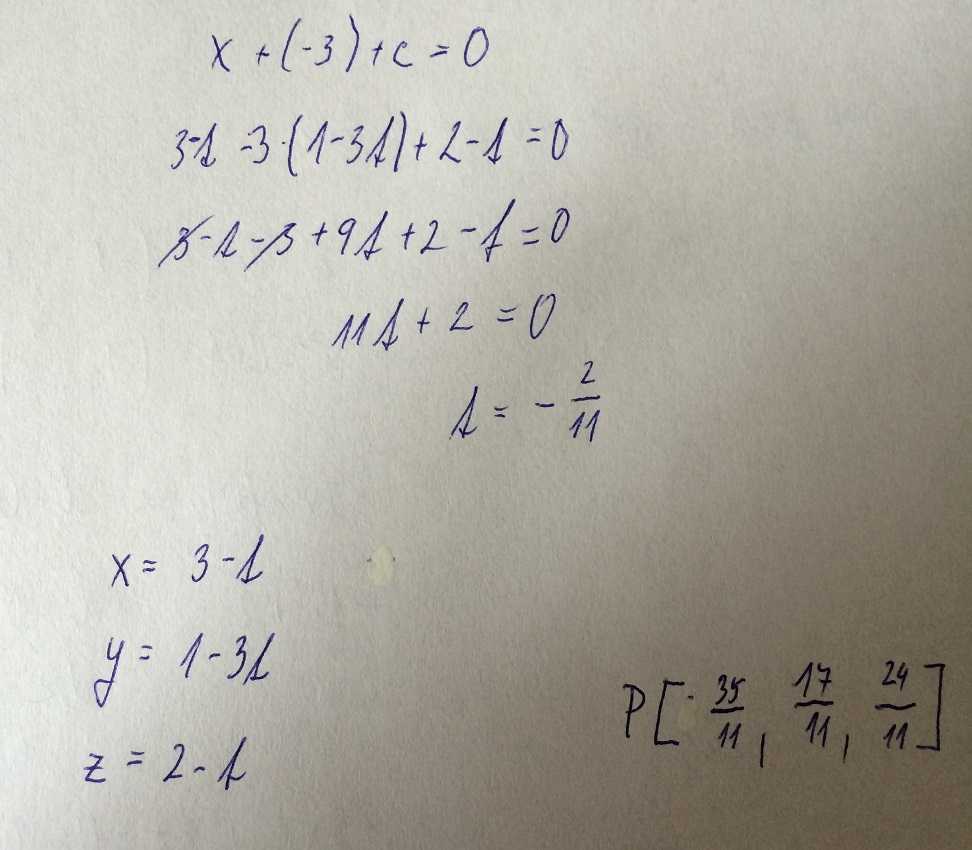 x + (-3) + c = 0
3-t -3·(1-3t) + 2-t = 0
3-t-3+9t+2-t=0
11t + 2 = 0
t = - 2/11
x = 3-t
y = 1-3t
z = 2-t
P[35/11, 17/11, 24/11]